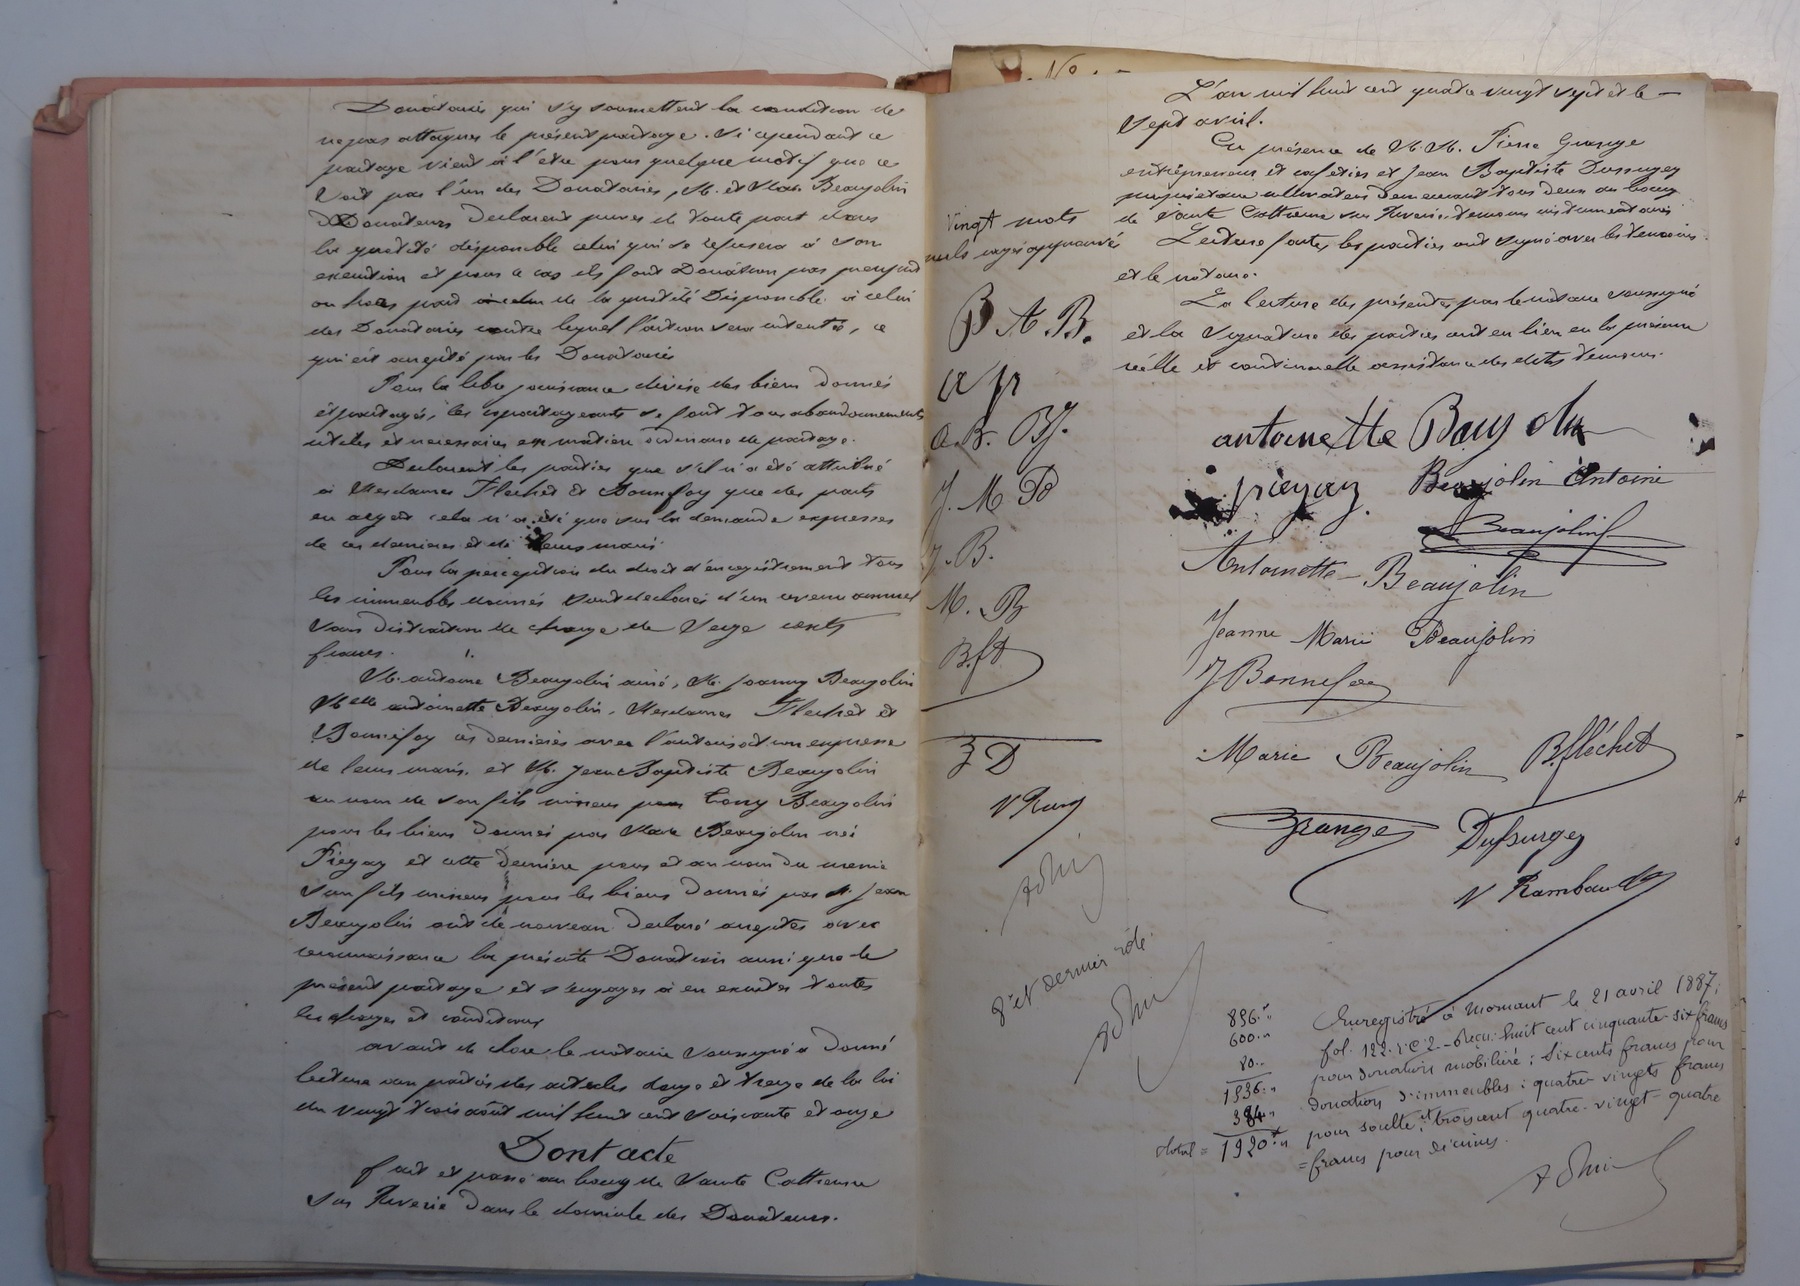 Donataires qui s'y soumettent la condition de
ne pas attaquer le présent partage. Si cependant ce
partage vient à l'être pour quelque motif que ce
soit par l'un des Donataires, M. et Mme Beaujolin
Donateurs declarent priver de toute part dans
la quotité disponible celui qui se refusera à son
execution et pour ce cas ils font Donation par preciput
ou hors part de la quotité Disponible à celui
des Donataires contre lequel l'action sera intentée, ce
qui est accepté par les Donataires
Pour la libre jouissance divise des biens donnés
et partagés, les copartageants se font tous abandonnements
utiles et necessaires en matiere ordinaire de partage.
Declarent les parties que s'il n'a été attribué
à Mesdames Flechet et Bonnefoy que des parts
en argent cela n'a été que sur la demande expresse
de ces dernieres et de leurs maris
Pour la perception du droit d'enregistrement tous
les immeubles donnés sont declarés d'un revenu annuel
sans distraction de charge de Seize cents
francs.
M. antoine Beaujolin ainé, M. Joanny Beaujolin
Melle antoinette Beaujolin, Mesdames Flechet et
Bonnefoy ces dernieres avec l'autorisation expresse
de leurs maris, et M. Jean Baptiste Beaujolin
au nom de son fils mineur Tony Beaujolin
pour les biens donnés par Mme Beaujolin née
Pieyay et cette derniere pour et au nom du meme
son fils mineur pour les biens donnés par M Jean
Beaujolin ont de nouveau declaré accepter avec
reconnaissance la présente Donation ainsi que le
présent partage et s'engager à en executer toutes
les charges et conditions
avant de clore le notaire soussigné a donné
lecture aux parties des articles douze et treize de la loi
du vingt trois août mil huit cent soixante et onze
Dont acte
fait et passé au bourg de Sainte Catherine
sur Riverie dans le domicile des Donateurs.
L'an mil huit cent quatre vingt sept et le
sept avril.
En présence de M.M. Pierre Grange
entrepreneur et cafetier et Jean Baptiste Dussurgey
proprietaire cultivateur demeurant tous deux au bourg
de Sainte Catherine sur Riverie, temoins instrumentaires
Lecture faite, les parties ont signé avec les temoins
et le notaire.
La lecture des présentes par le notaire soussigné
et la signature des parties ont eu lieu en la présence
réelle et continuelle assistance des dits temoins.
Vingt mots
nuls rayés approuvés
B A.B.
a p
a.B. BJ.
J. M B
J. B.
M. B
B.ft
G D
V Ramb
antoinette Beaujolin
pieyay Beaujolin Antoine
Beaujolin
Antoinette Beaujolin
Jeanne Marie Beaujolin
J Bonnefoy
Marie Beaujolin B. fléchet
Grange Dussurgey
V Rambaud
8e et dernier rôle
Enregistré à Mornant le 21 avril 1887,
fol. 122. r. c. 2 - Reçu: huit cent cinquante-six francs
pour donation mobilière; Six cents francs pour
donation d'immeubles; quatre-vingts francs
pour soulte; et troiscent quatre-vingt-quatre
francs pour décimes.
856.f"
600.."
80..
1536.."
384.."
Total = 1920.f"